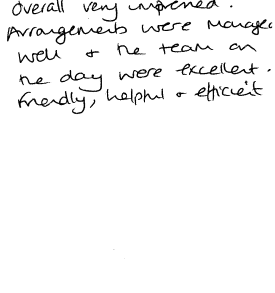 Overall very impressed.
Arrangements were managed
well & the team on
the day were excellent.
Friendly, helpful & efficient